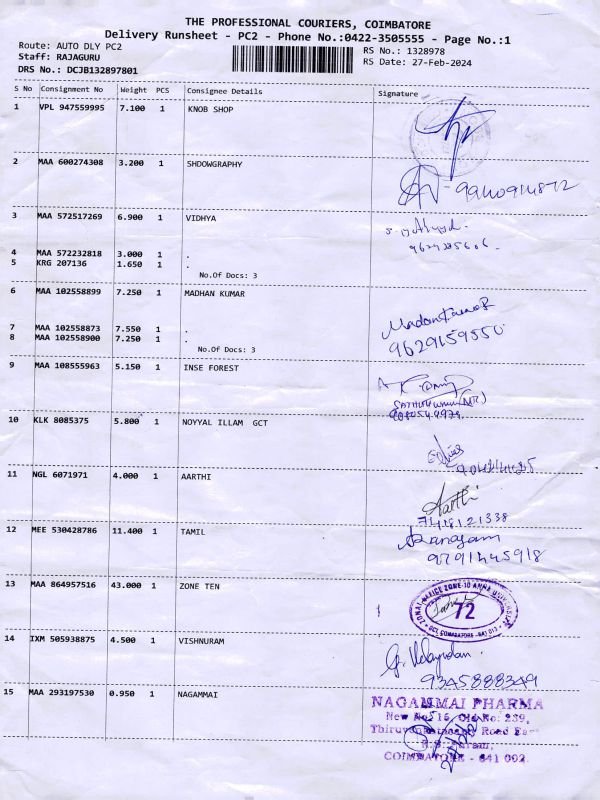 THE PROFESSIONAL COURIERS, COIMBATORE
Delivery Runsheet - PC2 - Phone No.:0422-3505555 - Page No.:1
Route: AUTO DLY PC2
RS No.: 1328978
Staff: RAJAGURU
RS Date: 27-Feb-2024
DRS No.: DCJB132897801
S No Consignment No Weight PCS Consignee Details Signature
1 VPL 947559995 7.100 1 KNOB SHOP
2 MAA 600274308 3.200 1 SHDOWGRAPHY
9940914872
3 MAA 572517269 6.900 1 VIDHYA
4 MAA 572232818 3.000 1 .
5 KRG 207136 1.650 1 .
No.Of Docs: 3
6 MAA 102558899 7.250 1 MADHAN KUMAR
9629159550
7 MAA 102558873 7.550 1 .
8 MAA 102558900 7.250 1 .
No.Of Docs: 3
9 MAA 108555963 5.150 1 INSE FOREST
10 KLK 8085375 5.800 1 NOYYAL ILLAM GCT
11 NGL 6071971 4.000 1 AARTHI
Aarthi
7418121338
12 MEE 530428786 11.400 1 TAMIL
9791445918
13 MAA 864957516 43.000 1 ZONE TEN
72
14 IXM 505938875 4.500 1 VISHNURAM
G. Velayudan
9345888349
15 MAA 293197530 0.950 1 NAGAMMAI
NAGAMMAI PHARMA
New No: 16, Old No: 239,
Road East
COIMBATORE - 641 002.